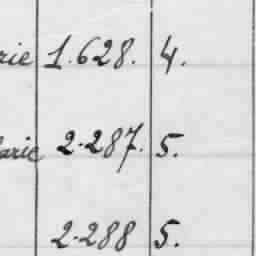 rie 1.628. 4.
arie 2.287. 5.
2.288 5.